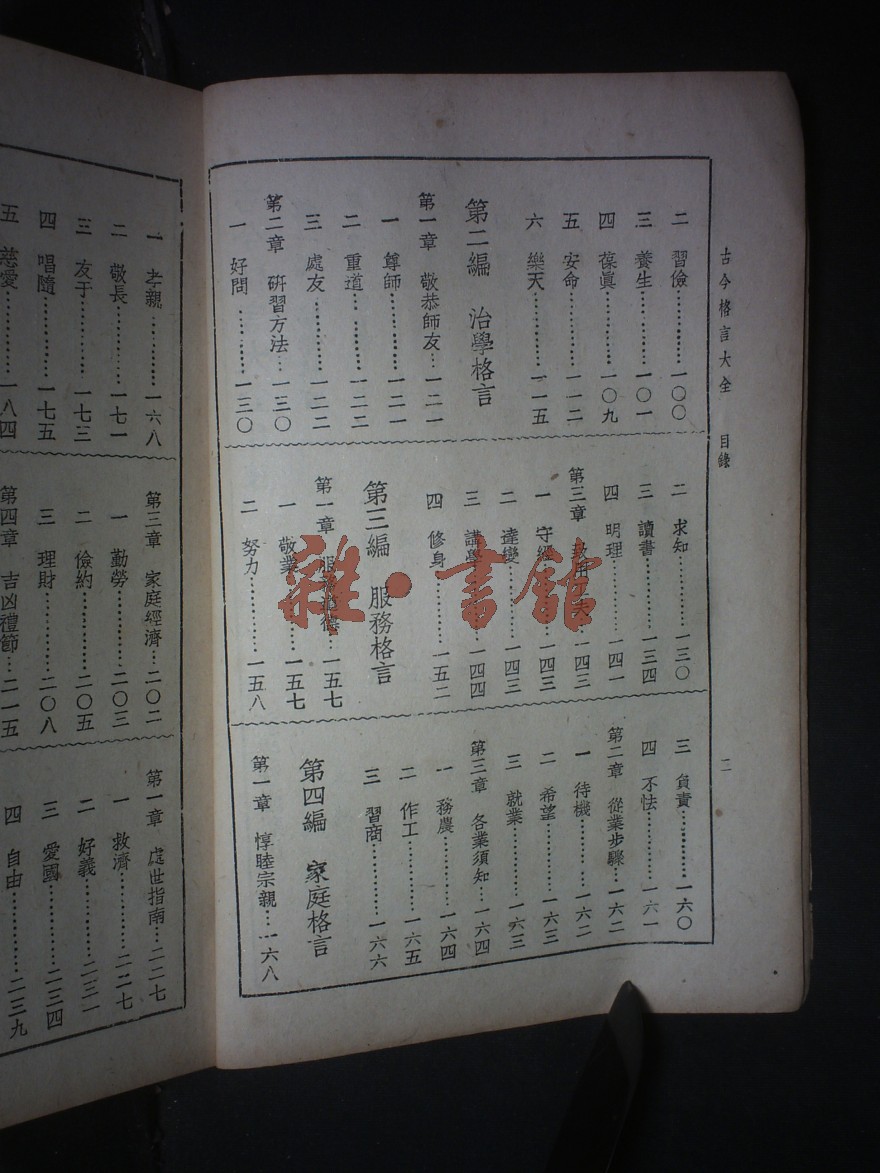 古今格言大全 目錄 二
二 習儉………一〇〇
三 養生………一〇一
四 葆眞………一〇九
五 安命………一一二
六 樂天………一一五
第二編 治學格言
第一章 敬恭師友…一二一
一 尊師………一二一
二 重道………一二二
三 處友………一二二
第二章 硏習方法…一三〇
一 好問………一三〇
二 求知………一三〇
三 讀書………一三四
四 明理………一四一
第三章 致用工夫…一四三
一 守經………一四三
二 達變………一四三
三 講學………一四四
四 修身………一五二
第三編 服務格言
第一章 服務道德…一五七
一 敬業………一五七
二 努力………一五八
三 負責………一六〇
四 不怯………一六一
第二章 從業步驟…一六二
一 待機………一六二
二 希望………一六三
三 就業………一六三
第三章 各業須知…一六四
一 務農………一六四
二 作工………一六五
三 習商………一六六
第四編 家庭格言
第一章 惇睦宗親…一六八
一 孝親………一六八
二 敬長………一七一
三 友于………一七三
四 唱隨………一七五
五 慈愛………一八四
第三章 家庭經濟…二〇二
一 勤勞………二〇三
二 儉約………二〇五
三 理財………二〇八
第四章 吉凶禮節…二一五
第一章 處世指南…二二七
一 救濟………二二七
二 好義………二三一
三 愛國………二三四
四 自由………二三九
雜·書館